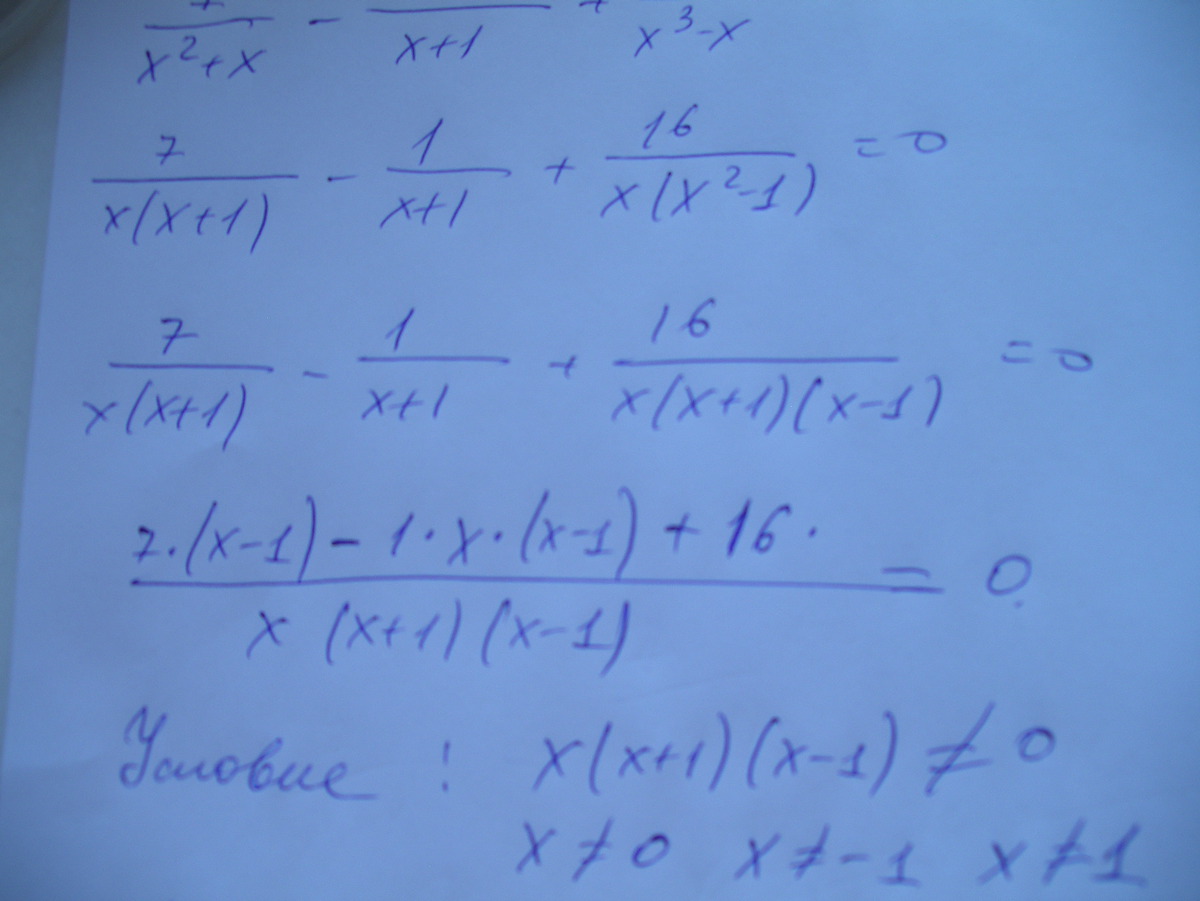 7/(x²+x) - /(x+1) + /(x³-x)
7/(x(x+1)) - 1/(x+1) + 16/(x(x²-1)) = 0
7/(x(x+1)) - 1/(x+1) + 16/(x(x+1)(x-1)) = 0
(7·(x-1) - 1·x·(x-1) + 16·)/(x(x+1)(x-1)) = 0
Условие : x(x+1)(x-1) ≠ 0
x ≠ 0 x ≠ -1 x ≠ 1